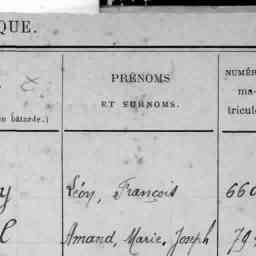 QUE.
PRÉNOMS
ET SURNOMS.
NUMÉR
ma-
tricule
en bâtarde.)
y Léon, François 660
l Amand, Marie, Joseph 79